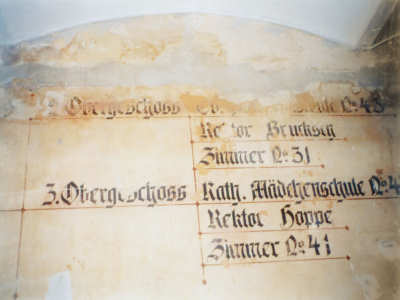 2. Obergeschoss
Rektor Brucksch
Zimmer No 31
3. Obergeschoss Kath. Mädchenschule No 4
Rektor Hoppe
Zimmer No 41